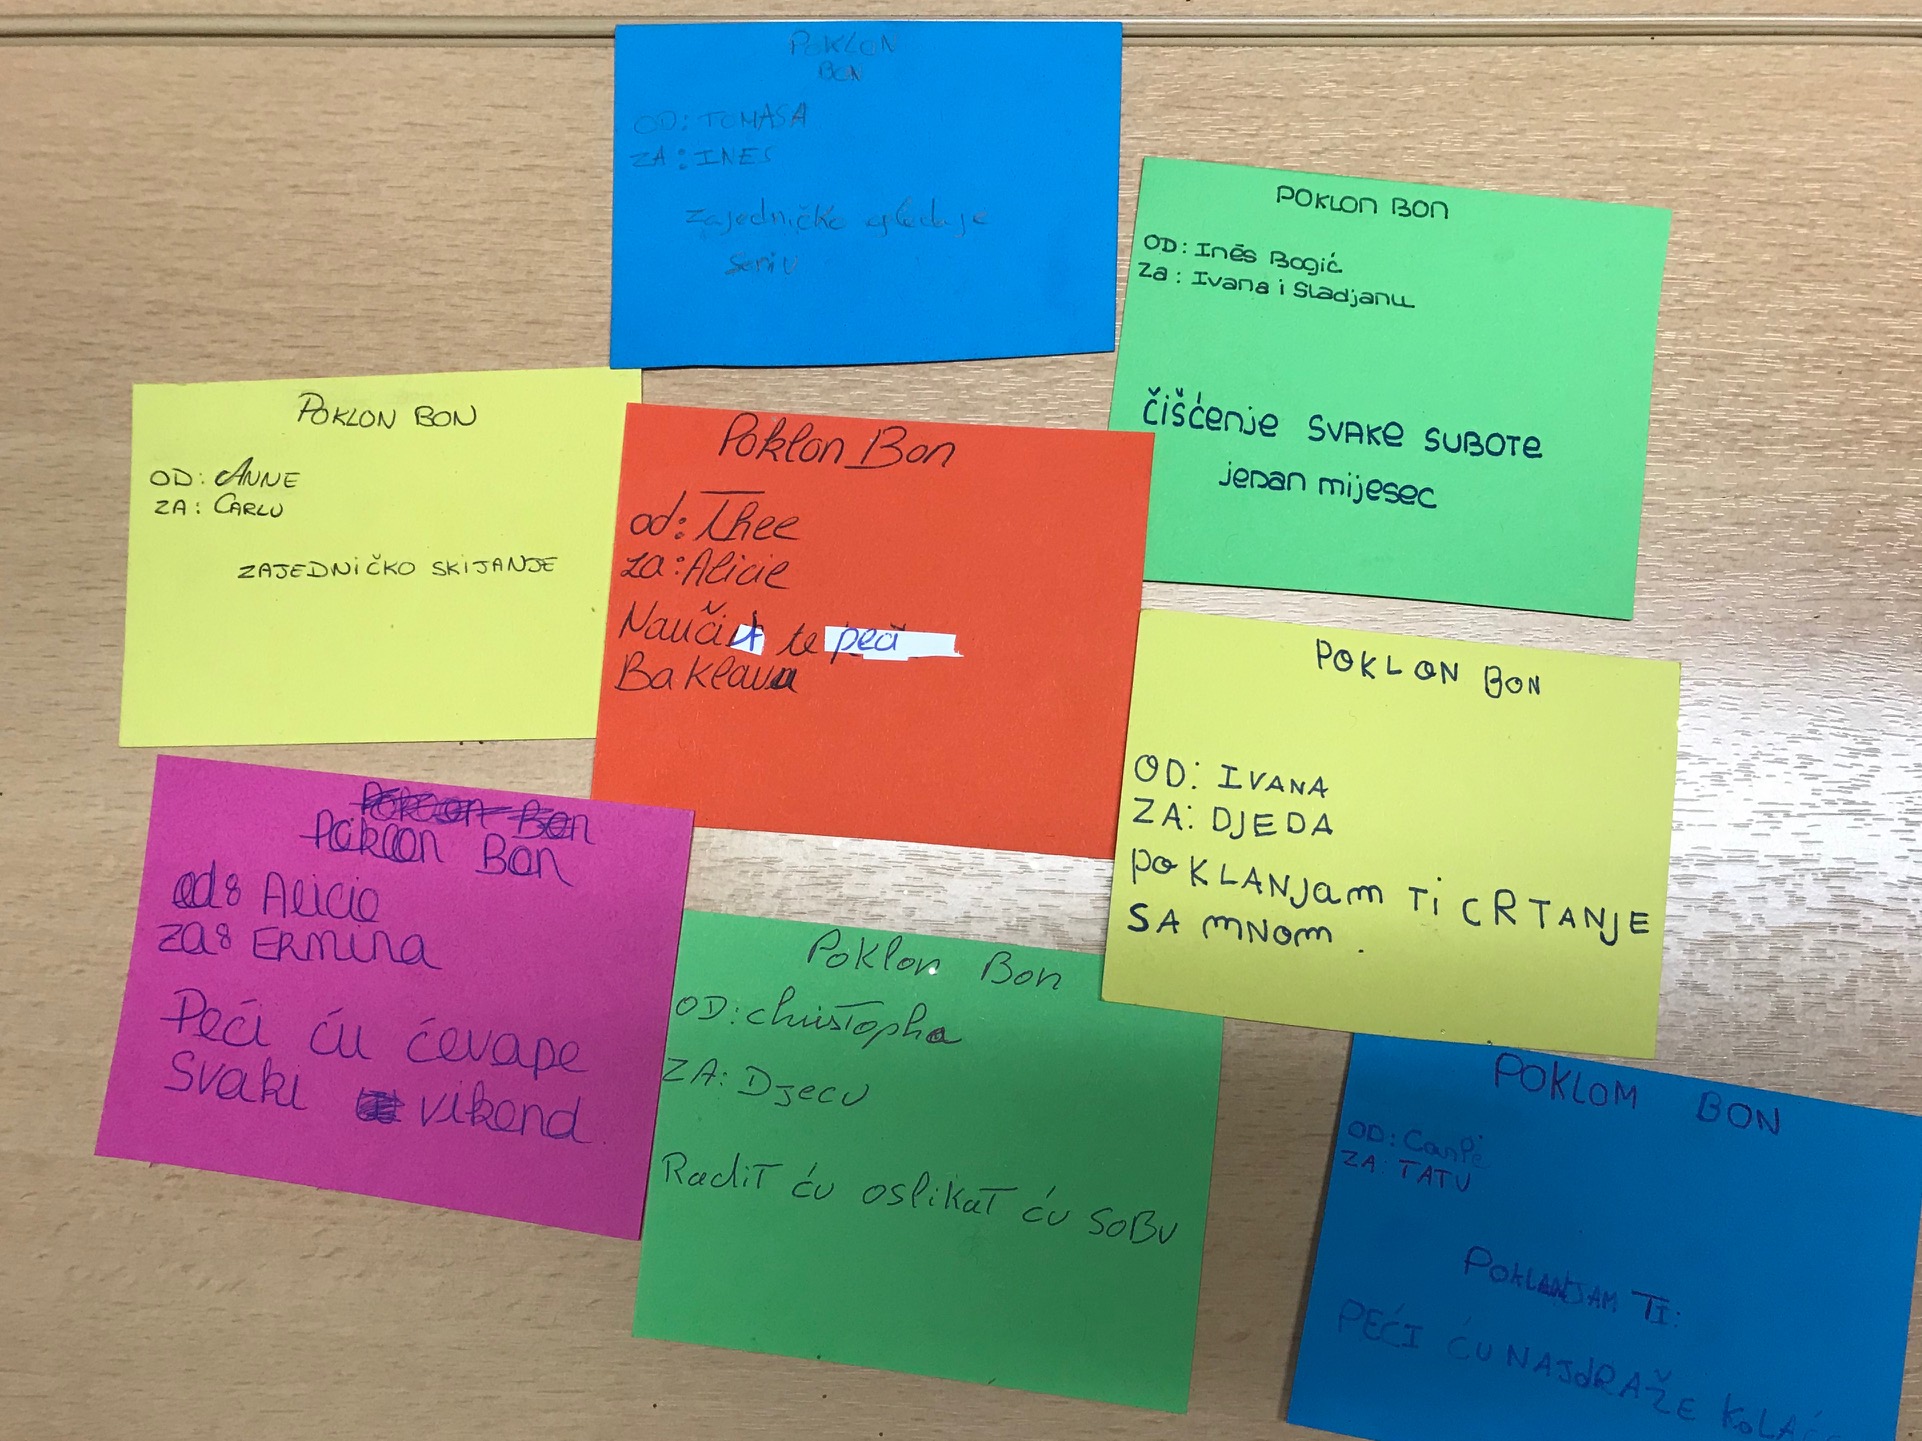 POKLON
BON
OD: TOMASA
ZA: INES
zajedničko
POKLON BON
OD: Inés Bogić
Za: Ivana i Sladjanu
čišćenje SVAKE SUBOTE
jedan mijesec
POKLON BON
OD: ANNE
ZA: CARLU
ZAJEDNIČKO SKIJANJE
Poklon Bon
od: Thee
za: Alicie
te peći
POKLON BON
OD: IVANA
ZA: DJEDA
poKLANJam Ti CRTANJE
SA mNom.
Bon
Bon
od: Alicie
za: ERmina
Peći ću ćevape
Svaki vikend.
Poklon Bon
OD: christopha
ZA: Djecu
RadiT ću oslikaT ću SoBu
POKLOM BON
OD:
ZA: TATU
POKLANJAM TI:
PEĆI ĆU NAJdRAŽE